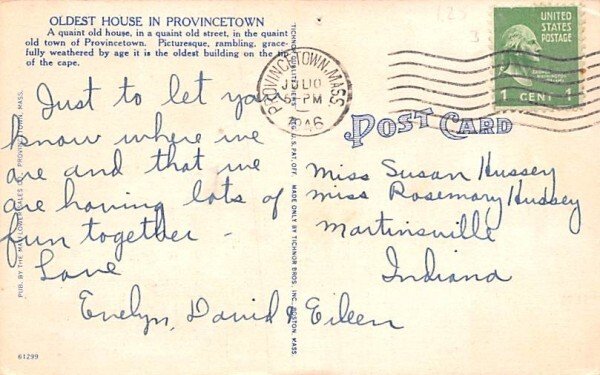 OLDEST HOUSE IN PROVINCETOWN
A quaint old house, in a quaint old street, in the quaint
old town of Provincetown. Picturesque, rambling, grace-
fully weathered by age it is the oldest building on the tip
of the cape.
Just to let you
know where we
are and that we
are having lots of
fun together -
Love
Evelyn, David & Eileen
61299
PUB. BY THE MAYFLOWER SALES CO., PROVINCETOWN, MASS.
MADE ONLY BY TICHNOR BROS. INC. BOSTON MASS
PROVINCETOWN, MASS.
PM
1946
UNITED
STATES
POSTAGE
1 CENT 1
POST CARD
Miss Susan Hussey
Miss Rosemary Hussey
Martinsville
Indiana